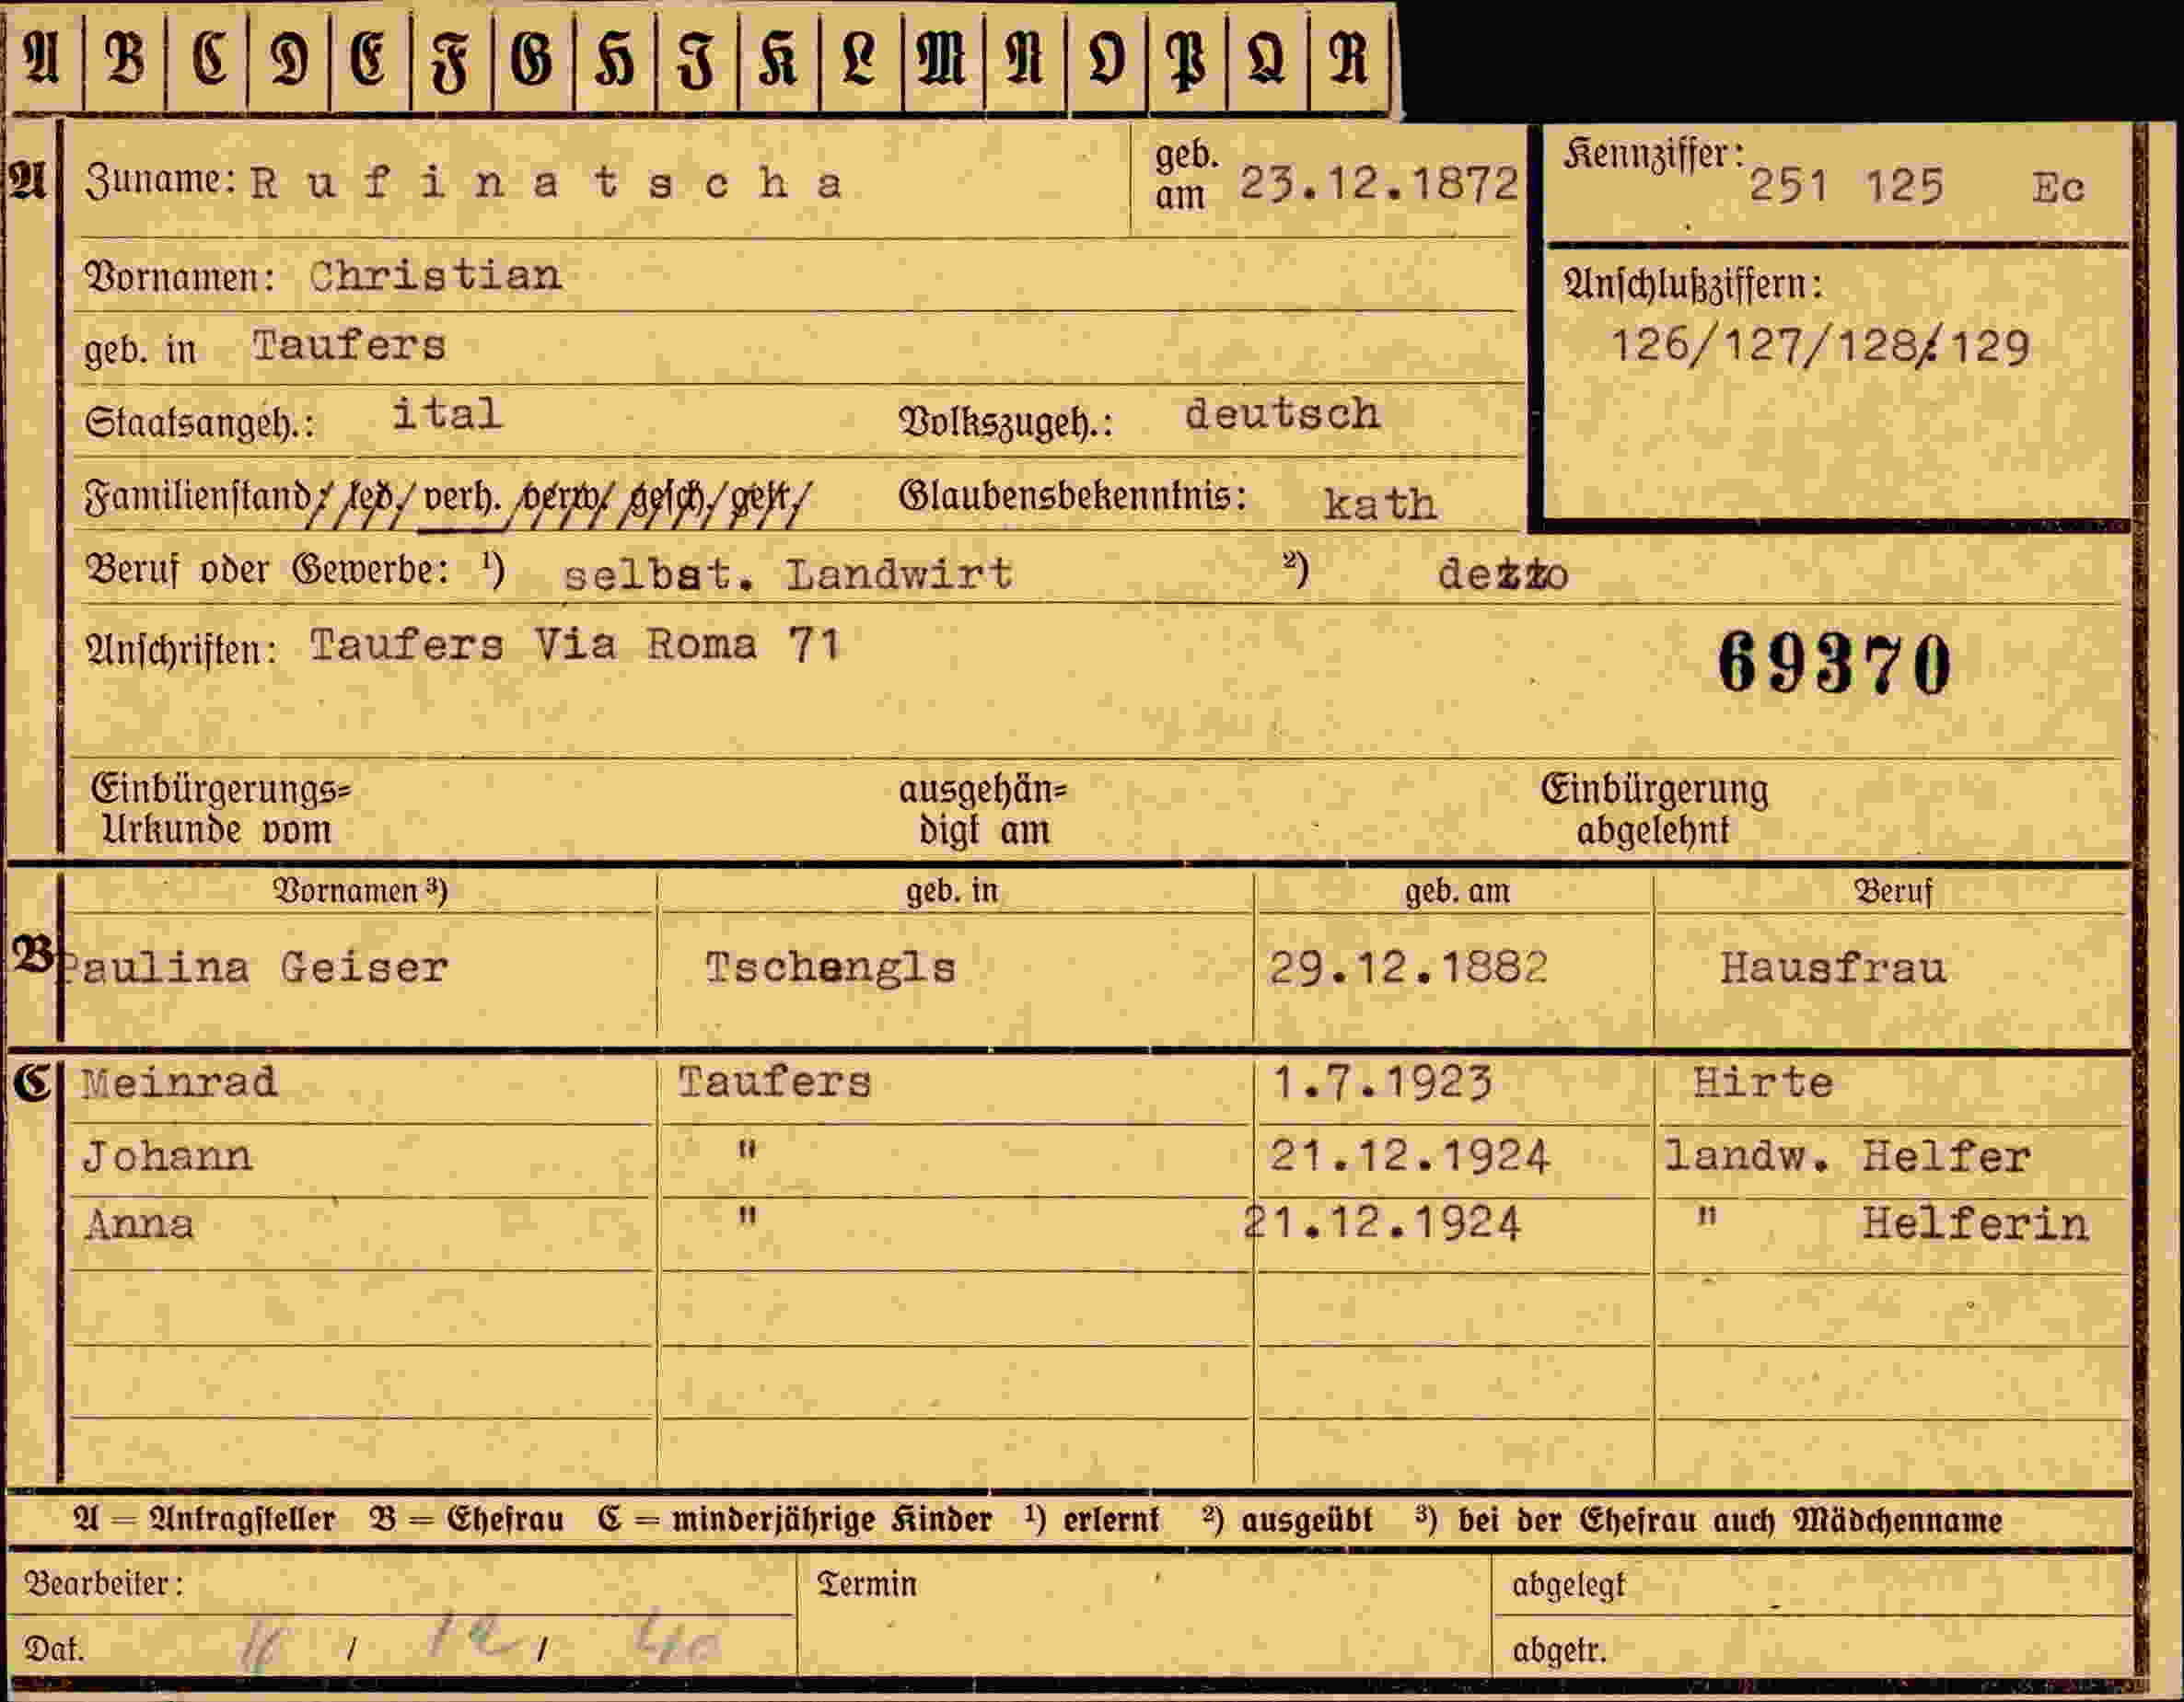 A B C D E F G H I K L M N O P Q R
A Zuname: Rufinatscha geb. am 23.12.1872 Kennziffer: 251 125 Ec
Vornamen: Christian Anschlußziffern:
geb. in Taufers 126/127/128/129
Staatsangeh.: ital Volkszugeh.: deutsch
Familienstand: led./ verh. /verw/ gesch/ getr/ Glaubensbekenntnis: kath
Beruf oder Gewerbe: ¹) selbst. Landwirt ²) detto
Anschriften: Taufers Via Roma 71 69370
Einbürgerungs= ausgehän= Einbürgerung
Urkunde vom digt am abgelehnt
Vornamen ³) geb. in geb. am Beruf
B Paulina Geiser Tschengls 29.12.1882 Hausfrau
C Meinrad Taufers 1.7.1923 Hirte
Johann " 21.12.1924 landw. Helfer
Anna " 21.12.1924 " Helferin
A = Antragsteller B = Ehefrau C = minderjährige Kinder ¹) erlernt ²) ausgeübt ³) bei der Ehefrau auch Mädchenname
Bearbeiter: Termin abgelegt
Dat. / 12 / 40 abgetr.